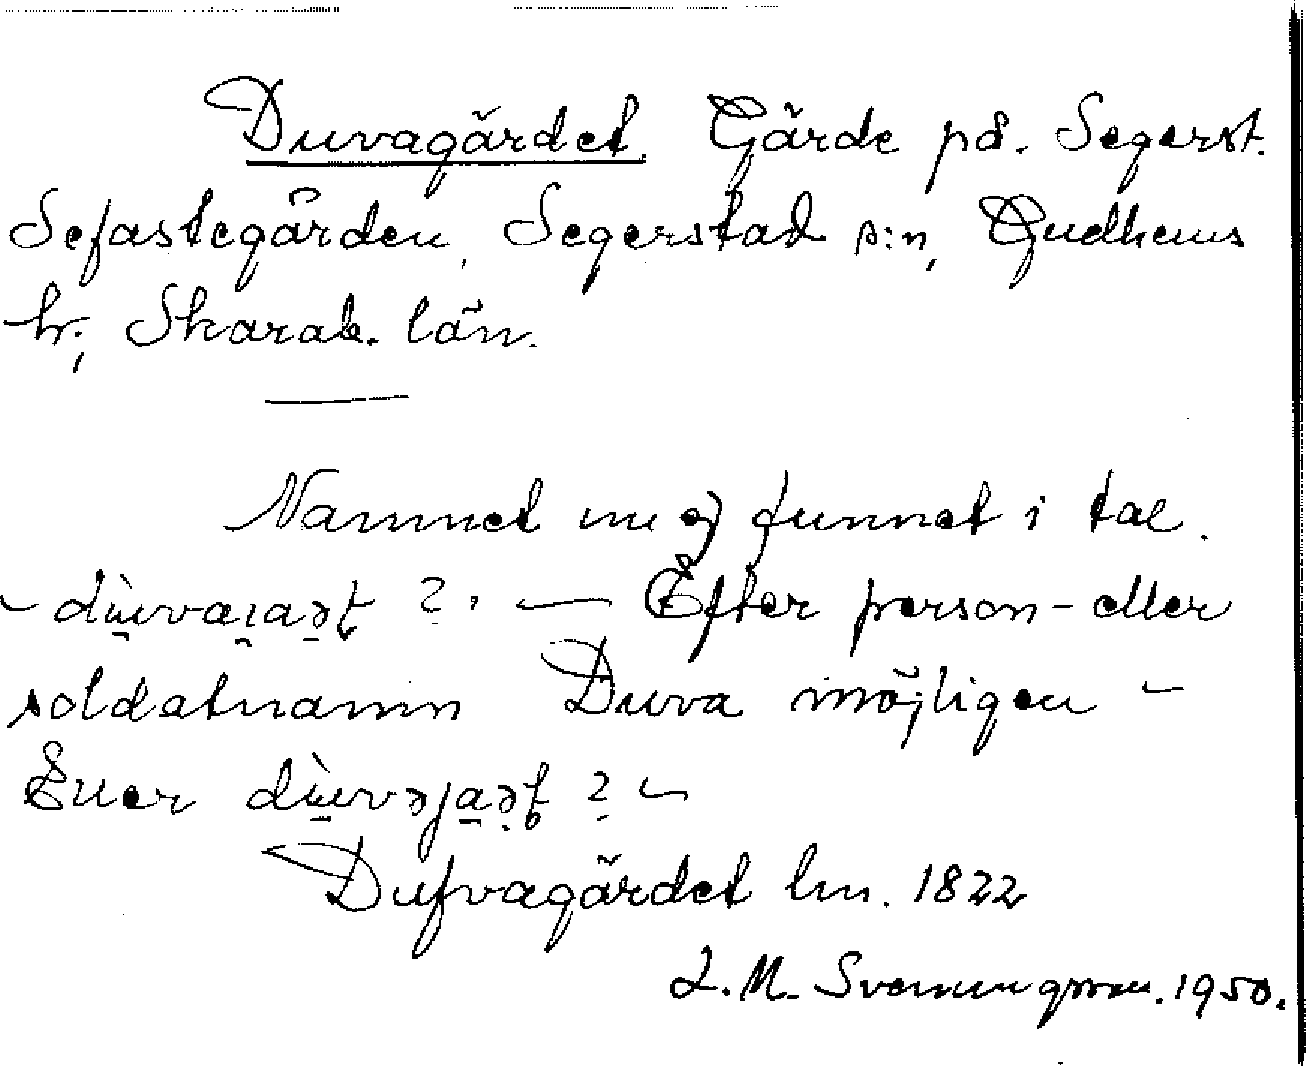 Duvagärdet. Gärde på Segerst.
Sefastegården, Segerstad s:n, Gudhems
hr, Skarab. län.
Namnet nu ej funnet i tal.
? . — Efter person- eller
soldatnamn Duva möjligen -
Euer ? -
Dufvagärdet lm. 1822
L. M. Svenungsson. 1950.